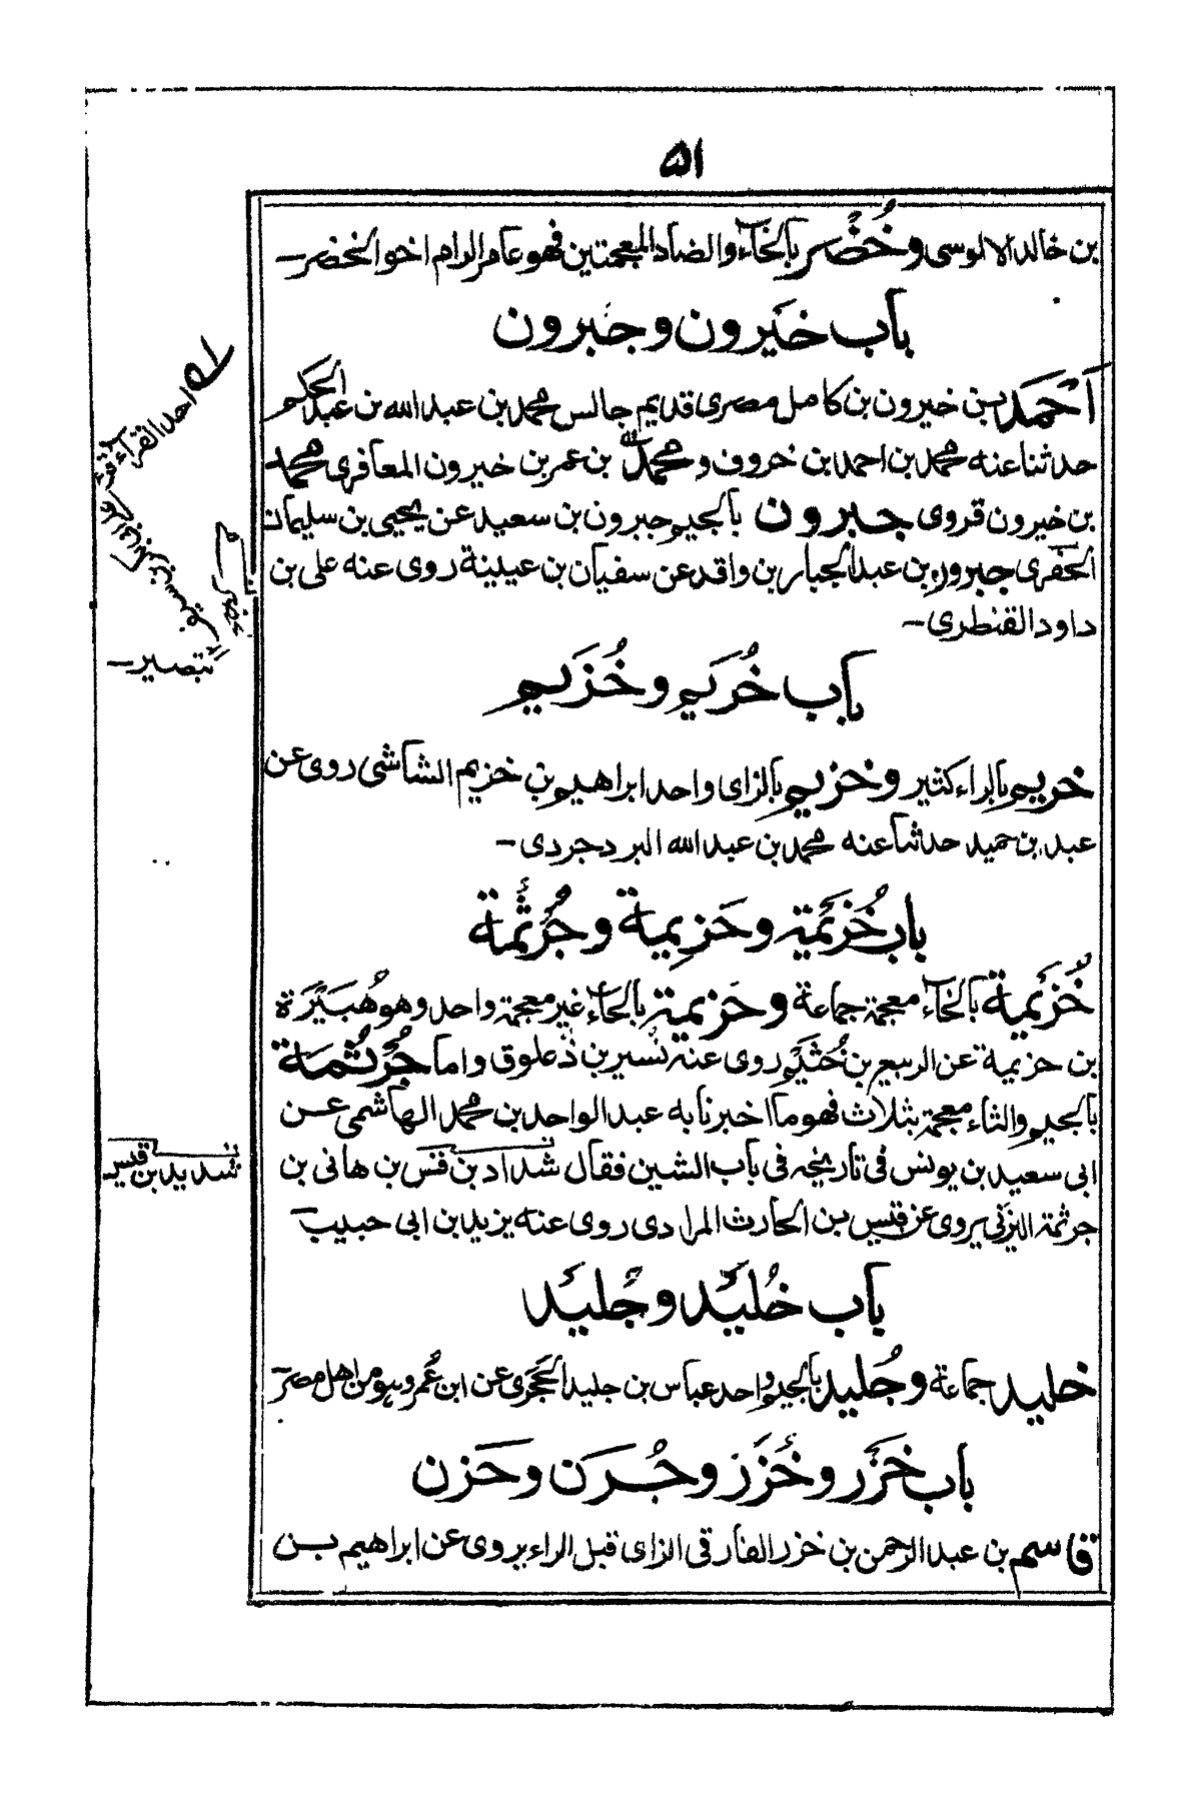 ۵۱
بن خالد الالوسى وخُضْر بالخاء والضاد المعجمتين فهو عامر الرام اخو الخضر—
باب خَيرون وجبرون
اَحْمَد بن خيرون بن كامل مصرى قديم جالس محمد بن عبد الله بن عبد الحكم
حدثنا عنه محمد بن احمد بن خروف ومحمد بن عمر بن خيرون المعافرى محمد
بن خيرون قروى جبرون بالجيم جبرون بن سعيد عن يحيى بن سليمان
الحفرى جبرون بن عبد الجبار بن واقد عن سفيان بن عيينة روى عنه على بن
داود القنطرى—
باب خُرَيم وخُزَيم
خريم بالراء كثير وخزيم بالزاى واحد ابراهيم بن خزيم الشاشى روى عن
عبد بن حميد حدثنا عنه محمد بن عبد الله البردجردى—
باب خُزَيمَة وحَزِيمة وجُرثُمة
خُزَيمة بالخاء معجمة جماعة وحَزيمة بالحاء غير معجمة واحد وهو هُبَيرَة
بن حزيمة عن الربيع بن خُثَيم روى عنه نسير بن ذعلوق واما جُرثُمة
بالجيم والثاء معجمة بثلاث فهو ما اخبرنا به عبد الواحد بن محمد الهاشمى عن
ابى سعيد بن يونس فى تاريخه فى باب الشين فقال شداد بن قنس بن هانى بن
جرثمة اليزنى يروى عن قيس بن الحارث المرادى روى عنه يزيد بن ابى حبيب—
باب خُلَيد وجُلَيد
خليد جماعة وجُليد بالجيم واحد عباس بن جليد الحَجَرى عن ابن عُمر وهو من اهل مصر—
باب خَزَر وخُزَز وجُرَن وحَزن
قاسم بن عبد الرحمن بن خزر الفارقى الزاى قبل الراء يروى عن ابراهيم بن
له احد القراء
بتصير—
شديد بن قيس